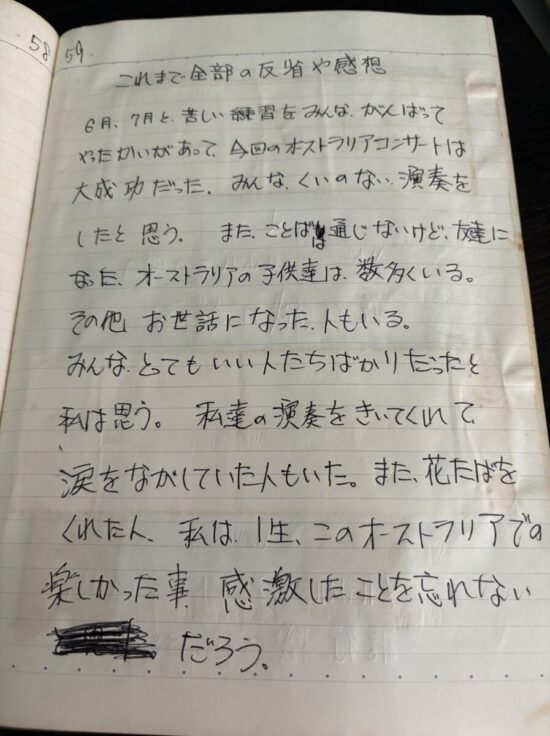 58
59
これまで全部の反省や感想
6月、7月と、苦しい練習をみんな、がんばって
やったかいがあって、今回のオストラリアコンサートは
大成功だった。みんな、くいのない、演奏を
したと思う。また、ことばは通じないけど、友達に
なった、オーストラリアの子供達は、数多くいる。
その他お世話になった、人もいる。
みんな、とてもいい人たちばかりだったと
私は思う。私達の演奏をきいてくれて、
涙をながしていた人もいた。また、花たばを
くれた人、私は、1生、このオーストラリアでの
楽しかった事、感激したことを忘れない
だろう。